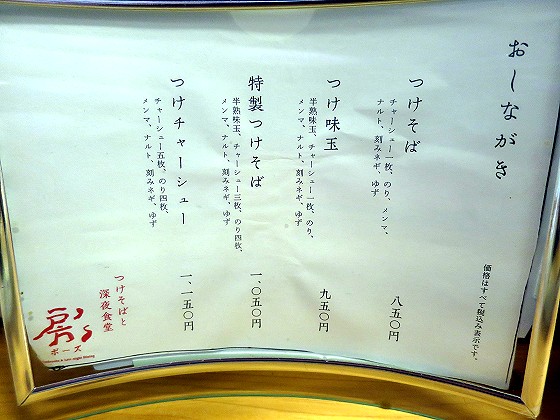 おしながき
価格はすべて税込み表示です。
つけそば
チャーシュー一枚、のり、メンマ、
ナルト、刻みネギ、ゆず
八五〇円
つけ味玉
半熟味玉、チャーシュー一枚、のり、
メンマ、ナルト、刻みネギ、ゆず
九五〇円
特製つけそば
半熟味玉、チャーシュー三枚、のり四枚、
メンマ、ナルト、刻みネギ、ゆず
一、〇五〇円
つけチャーシュー
チャーシュー五枚、のり四枚、
メンマ、ナルト、刻みネギ、ゆず
一、一五〇円
つけそばと
深夜食堂
ボーズ